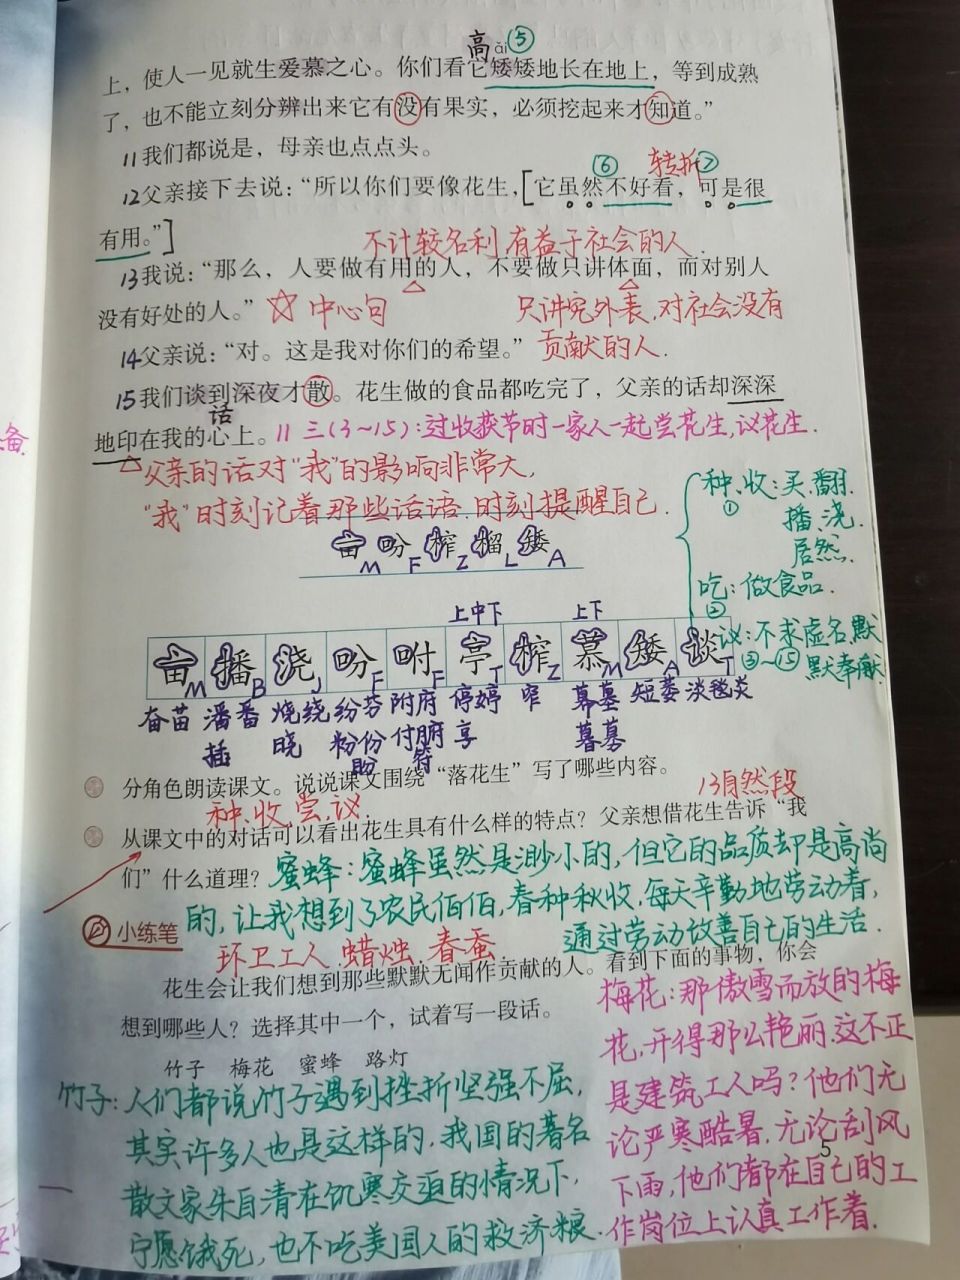 高 ⑤
ǎi
上，使人一见就生爱慕之心。你们看它矮矮地长在地上，等到成熟
了，也不能立刻分辨出来它有没有果实，必须挖起来才知道。”
11我们都说是，母亲也点点头。
⑥ 转折⑦
12父亲接下去说：“所以你们要像花生，[它虽然不好看，可是很
有用。”]
不计较名利,有益于社会的人.
13我说：“那么，人要做有用的人，不要做只讲体面，而对别人
没有好处的人。” ☆ 中心句 只讲究外表,对社会没有
14父亲说：“对。这是我对你们的希望。” 贡献的人.
15我们谈到深夜才散。花生做的食品都吃完了，父亲的话却深深
话
地印在我的心上。|| 三(3~15):过收获节时一家人一起尝花生,议花生.
父亲的话对“我”的影响非常大,
“我”时刻记着那些话语.时刻提醒自己.
种、收:买.翻.
① 播、浇.
居然.
吃:做食品.
②
议:不求虚名,默
③~⑮ 默奉献.
亩M 吩F 榨Z 榴L 矮A
上中下 上下
亩M 播B 浇J 吩F 咐F 亭T 榨Z 慕M 矮A 谈T
奋苗 潘番 烧绕 纷芬 附府 停婷 窄 幕墓 短委 淡毯炎
插 晓 粉份 付腑 享 暮募
盼 符
分角色朗读课文。说说课文围绕“落花生”写了哪些内容。
种、收、尝、议. 13自然段
从课文中的对话可以看出花生具有什么样的特点？父亲想借花生告诉“我
们”什么道理？ 蜜蜂:蜜蜂虽然是渺小的,但它的品质却是高尚
的,让我想到了农民伯伯,春种秋收,每天辛勤地劳动着,
小练笔
通过劳动改善自己的生活.
环卫工人、蜡烛、春蚕
花生会让我们想到那些默默无闻作贡献的人。看到下面的事物，你会
想到哪些人？选择其中一个，试着写一段话。
竹子 梅花 蜜蜂 路灯
梅花:那傲雪而放的梅
花,开得那么艳丽.这不正
是建筑工人吗?他们无
论严寒酷暑,无论刮风
下雨,他们都在自己的工
作岗位上认真工作着.
竹子:人们都说竹子遇到挫折坚强不屈,
其实许多人也是这样的.我国的著名
散文家朱自清在饥寒交迫的情况下,
宁愿饿死,也不吃美国人的救济粮.
5
备